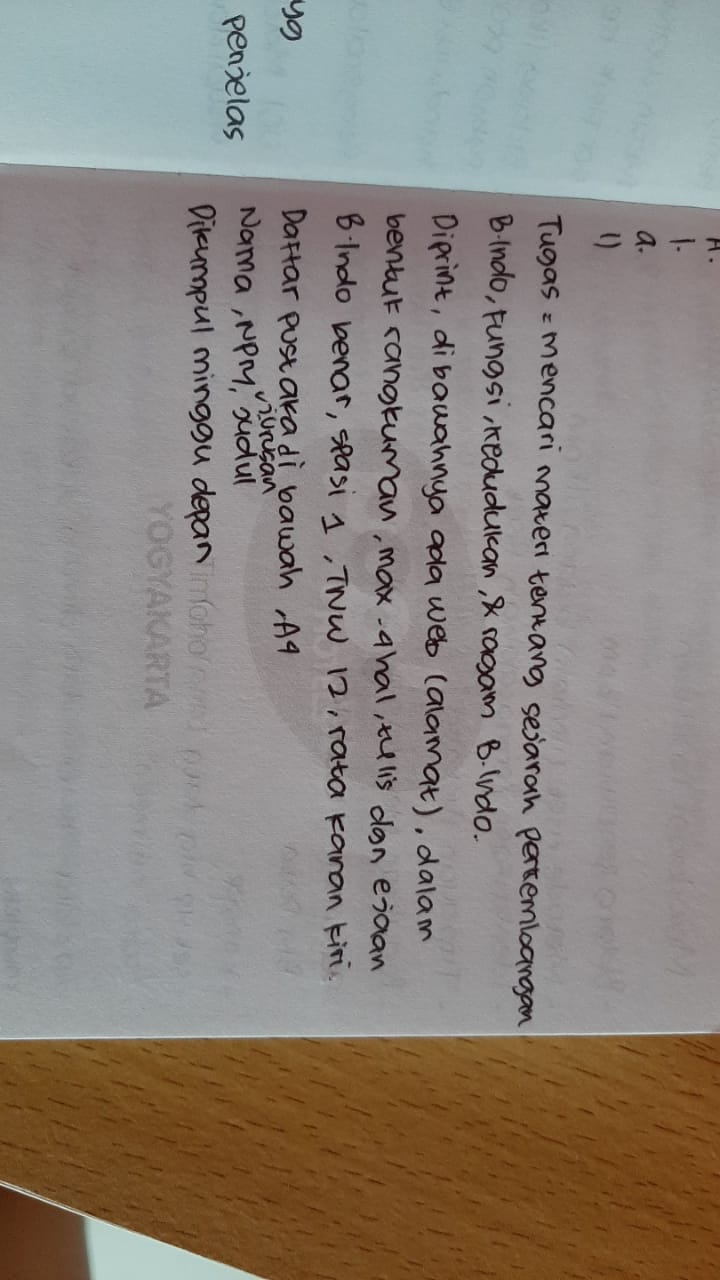 A.
1.
a.
1)
Tugas = mencari materi tentang sejarah perkembangan
B.Indo, fungsi, kedudukan, & ragam B.Indo.
Diprint, di bawahnya ada web (alamat), dalam
bentuk rangkuman, max. 4 hal, tulis dgn ejaan
B.Indo benar, spasi 1, TNW 12, rata kanan kiri.
Daftar pustaka di bawah, A4
jurusan
Nama, NPM, judul
Dikumpul minggu depan
yg
penjelas
Timoho
YOGYAKARTA